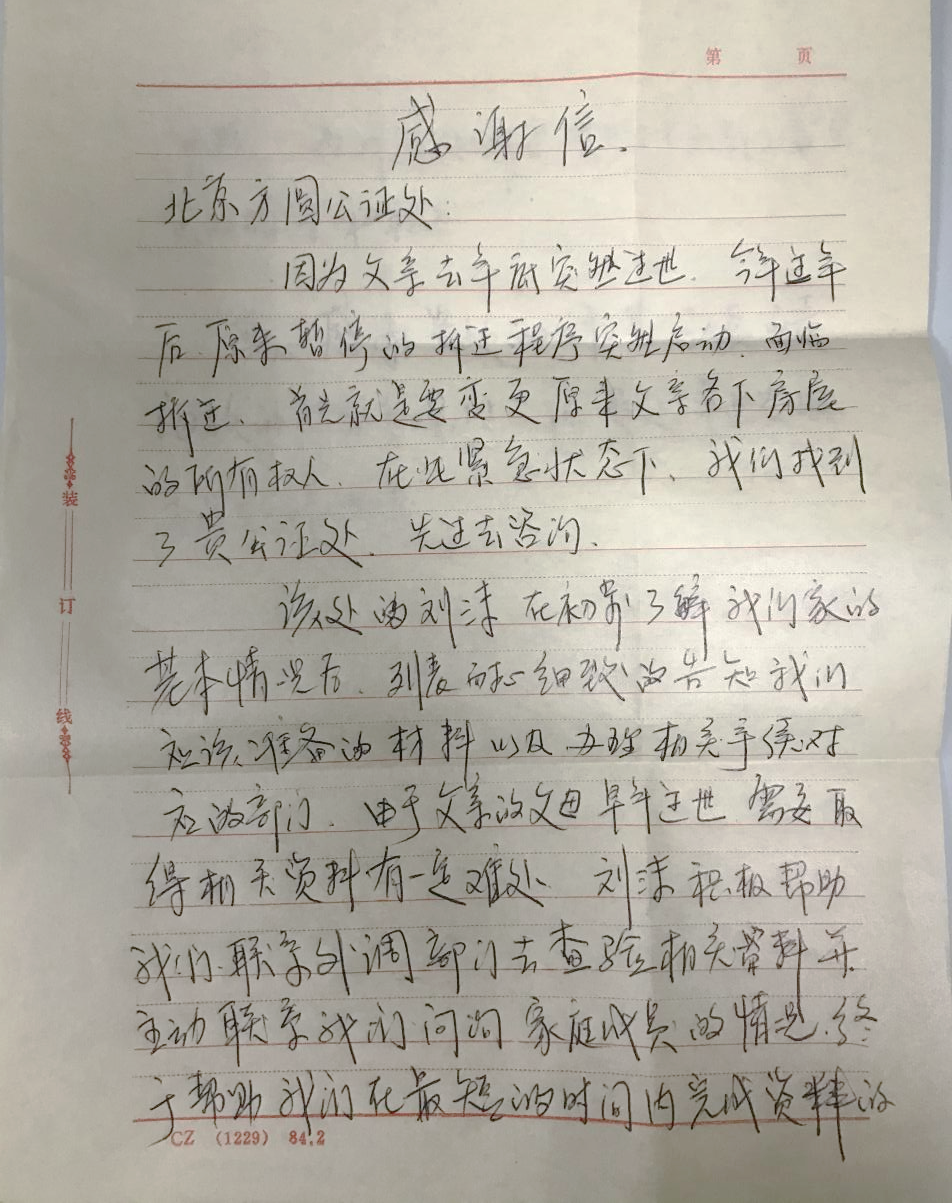 第 页
感谢信.
北京方圆公证处:
因为父亲去年底突然过世、今年过年
后、原来暂停的拆迁程序突然启动、面临
拆迁、首先就是要变更原来父亲名下房屋
的所有权人、在此紧急状态下、我们找到
了贵公证处、先过去咨询、
该处的刘沫在初步了解我们家的
基本情况后、列表耐心细致的告知我们
应该准备的材料以及办理相关手续对
应的部门、由于父亲的父母早年过世、需要取
得相关资料有一定难处、刘沫积极帮助
我们联系外调部门去查验相关资料并
主动联系我们问询家庭成员的情况、终
于帮助我们在最短的时间内完成资料的
装
订
线
CZ (1229) 84.2